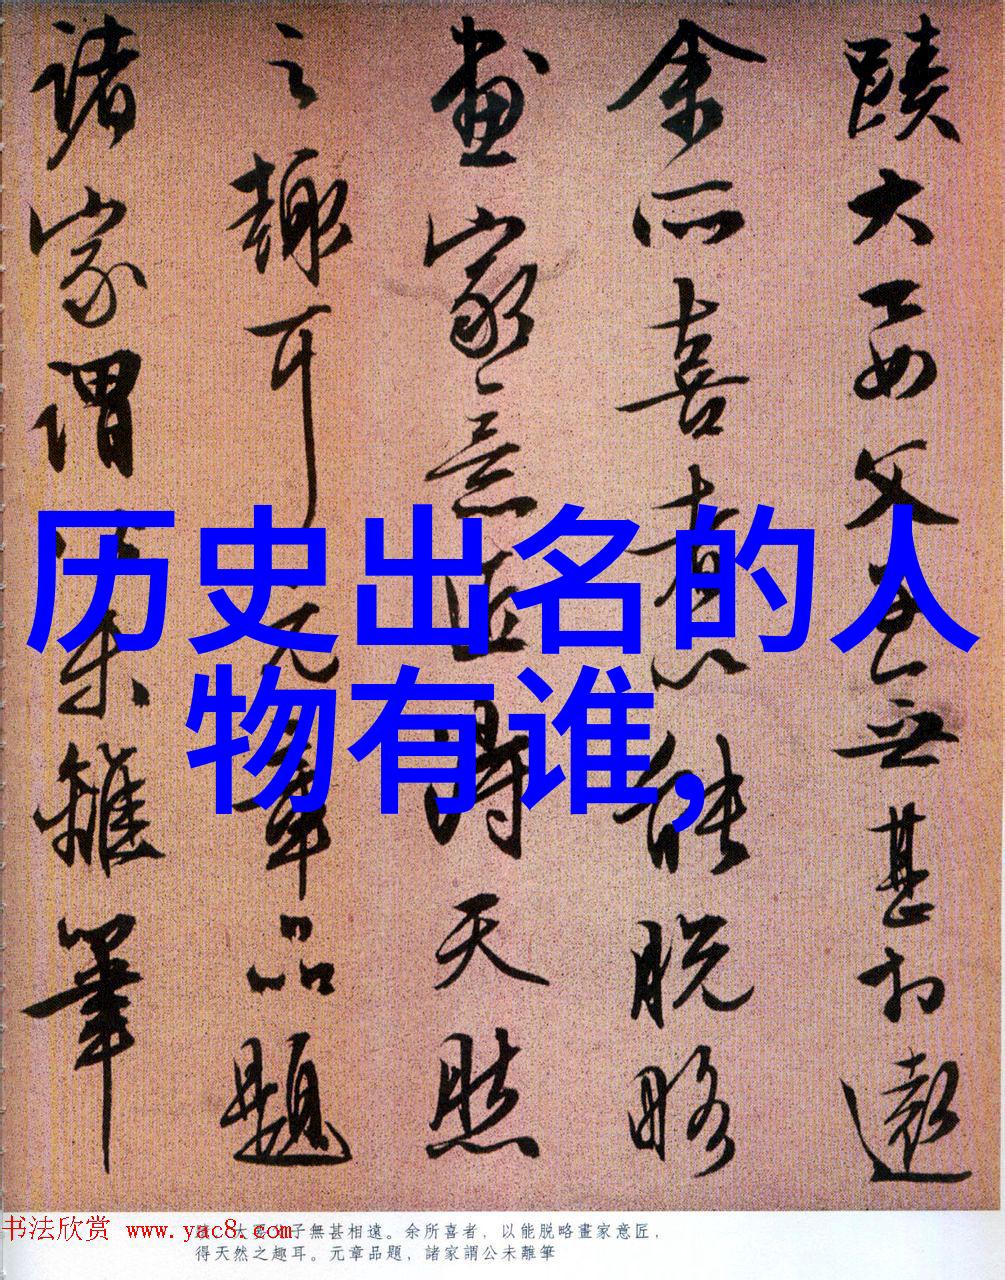 蹟大要父子無甚相遠
余所喜者以能脱略
畫家意匠得天然
之趣耳元章品題
諸家謂公未離筆
历史出名的人
物有谁,
书法欣赏 www.yac8.com
蹟,大要父子無甚相遠。余所喜者,以能脱略畫家意匠,
得天然之趣耳。元章品題,諸家謂公未離筆